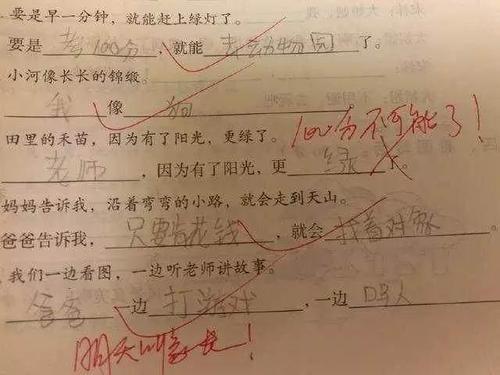 要是早一分钟，就能赶上绿灯了。
要是考100分，就能去动物园了。
小河像长长的锦缎。
我像狗
100分不可能了！
田里的禾苗，因为有了阳光，更绿了。
老师，因为有了阳光，更绿了。
妈妈告诉我，沿着弯弯的小路，就会走到天山。
爸爸告诉我，只要有花钱，就会找着对象
我们一边看图，一边听老师讲故事。
爸爸一边打游戏，一边人
明天叫家长！